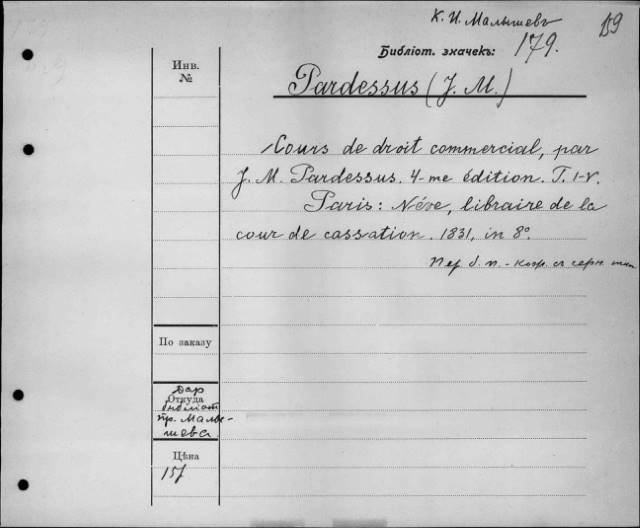 К. И. Малышевъ
Библіот. значекъ: 179.
Инв.
№
Pardessus (J. M.)
Cours de droit commercial, par
J. M. Pardessus. 4-me édition. T. I-V.
Paris: Nève, libraire de la
cour de cassation. 1831, in 8°.
Пер
По заказу
Даръ
Откуда
пр. Малы-
шева
Цѣна
15